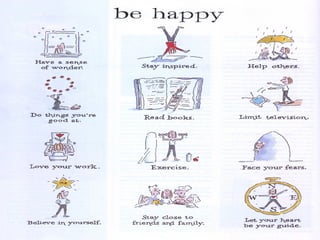 be happy
Have a sense
of wonder.
Stay inspired.
Help others.
Do things you're
good at.
Read books.
Limit television.
Love your work.
Exercise.
Face your fears.
N
W
E
S
Believe in yourself.
Stay close to
friends and family.
Let your heart
be your guide.